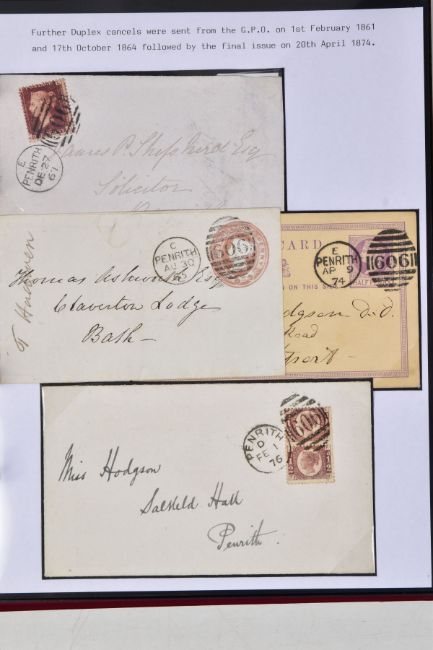 Further Duplex cancels were sent from the G.P.O. on 1st February 1861
and 17th October 1864 followed by the final issue on 20th April 1874.
606
E
PENRITH
DE 27
61
James P. Shepherd Esq
Solicitor
C
PENRITH
AU 30
65
606
Thomas Ashworth Esq
Claverton Lodge
Bath
CARD
E
PENRITH
AP 9
74
606
HALF
dgson d.d.
Road
PENRITH
D
FE 1
76
606
Miss Hodgson
Salkeld Hall
Penrith.